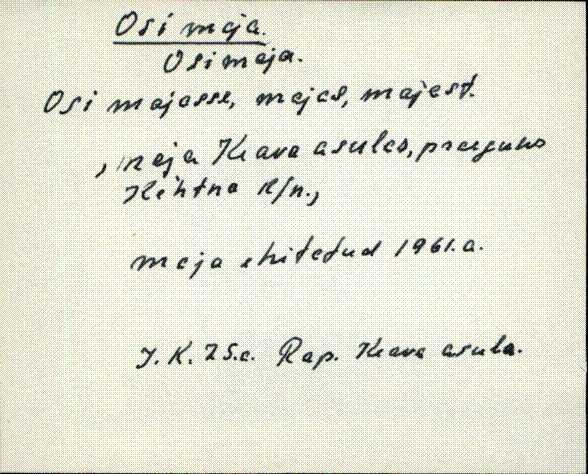 Osi maja.
Osi maja.
Osi majasse, majas, majast.
, maja Keava asulas, praegune
Kehtna k/n.,
maja ehitatud 1961.a.
J.K. 75.a. Rap. Keava asula.